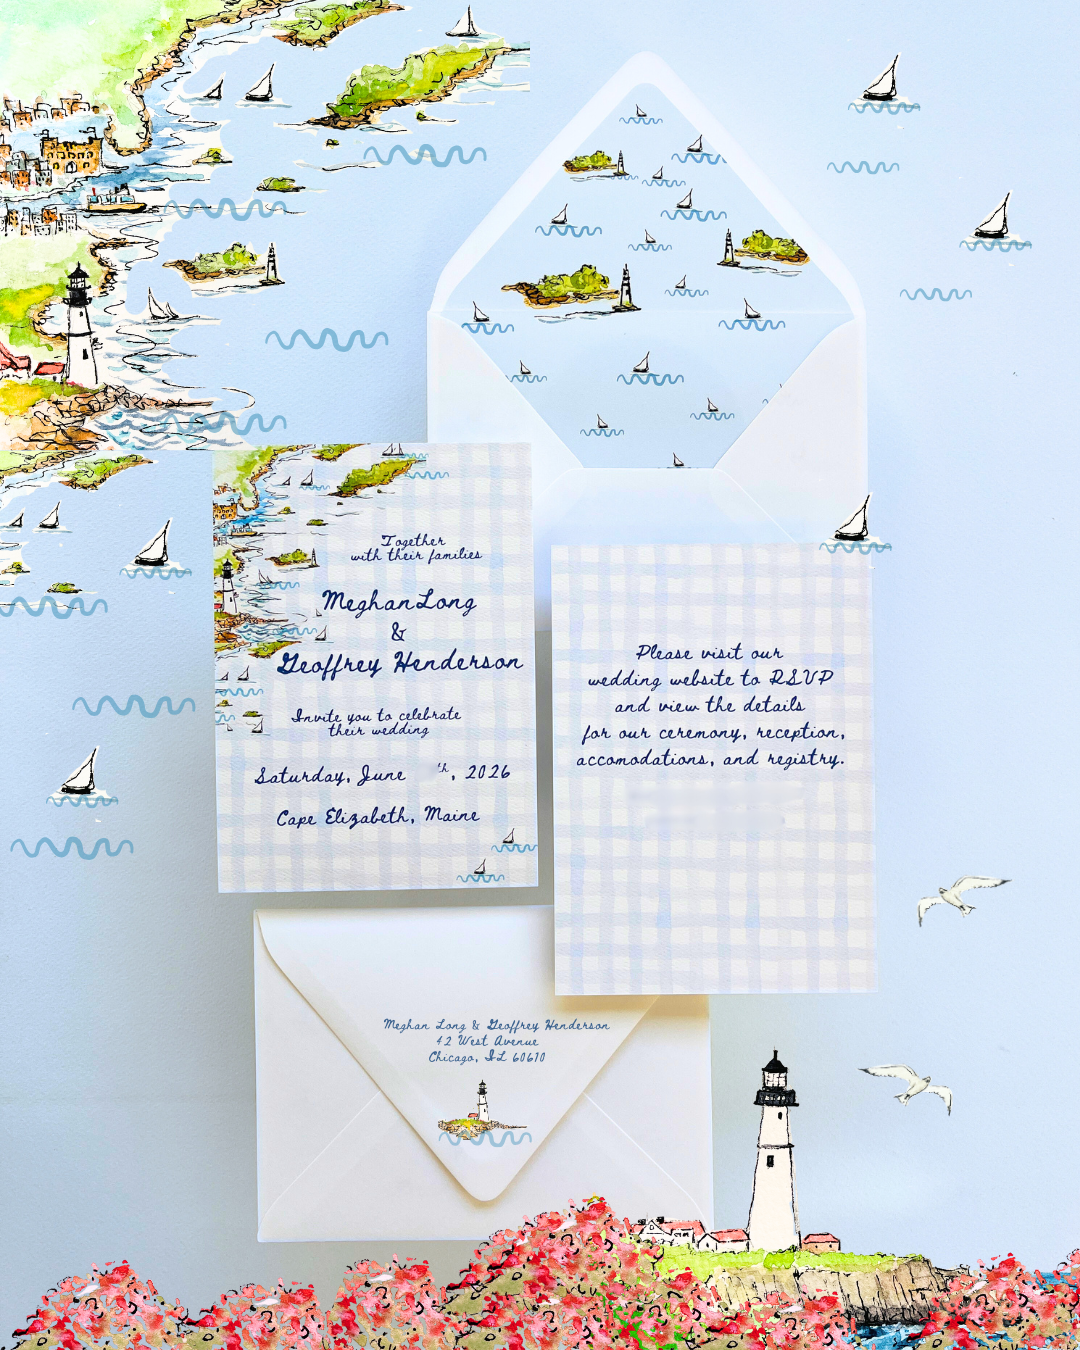 Together
with their families
Meghan Long
&
Geoffrey Henderson
Invite you to celebrate
their wedding
Saturday, June th, 2026
Cape Elizabeth, Maine
Please visit our
wedding website to RSVP
and view the details
for our ceremony, reception,
accomodations, and registry.
Meghan Long & Geoffrey Henderson
42 West Avenue
Chicago, IL 60610